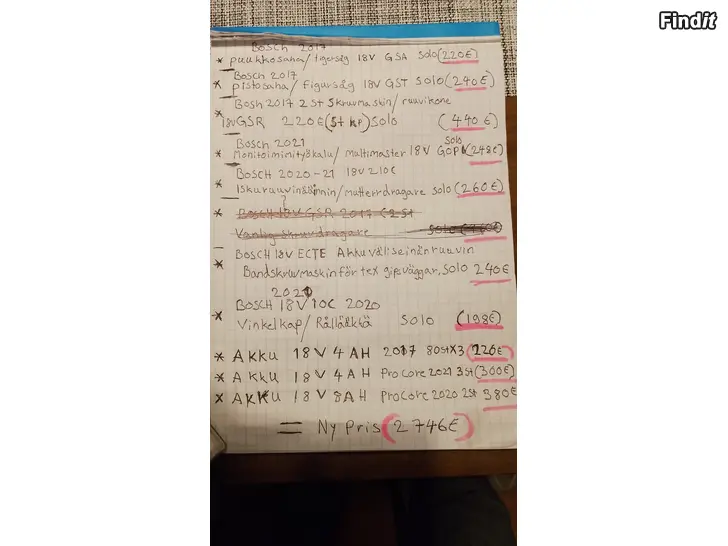 Findit
Bosch 2017
* puukkosaha/tigersåg 18V GSA Solo (220€)
Bosch 2017
* pistosaha/Figursåg 18V GST Solo (240€)
Bosh 2017 2st Skruvmaskin/ruuvikone
* 18V GSR 220€ (st hp) Solo (440€)
Bosch 2021
Solo
* Monitoimityökalu/multimaster 18V GOP (248€)
BOSCH 2020-21 18V 210C
* Iskuruuvinväännin/mutterdragare Solo (260€)
* Bosch 18V GSR 2017 (2st
Vanlig Skruvdragare Solo
BOSCH 18V ECTE Akku väliseinän ruuvin
Bandskruvmaskin för tex gipsväggar, Solo 240€
2021
BOSCH 18V 10C 2020
* Vinkelkap/Rälläkkä Solo (198€)
* AKKU 18V 4AH 2017 80stX3 (226€)
* AKKU 18V 4AH ProCore 2021 3st (300€)
* AKKU 18V 8AH ProCore 2020 2st 380€
= Ny Pris (2 746€)